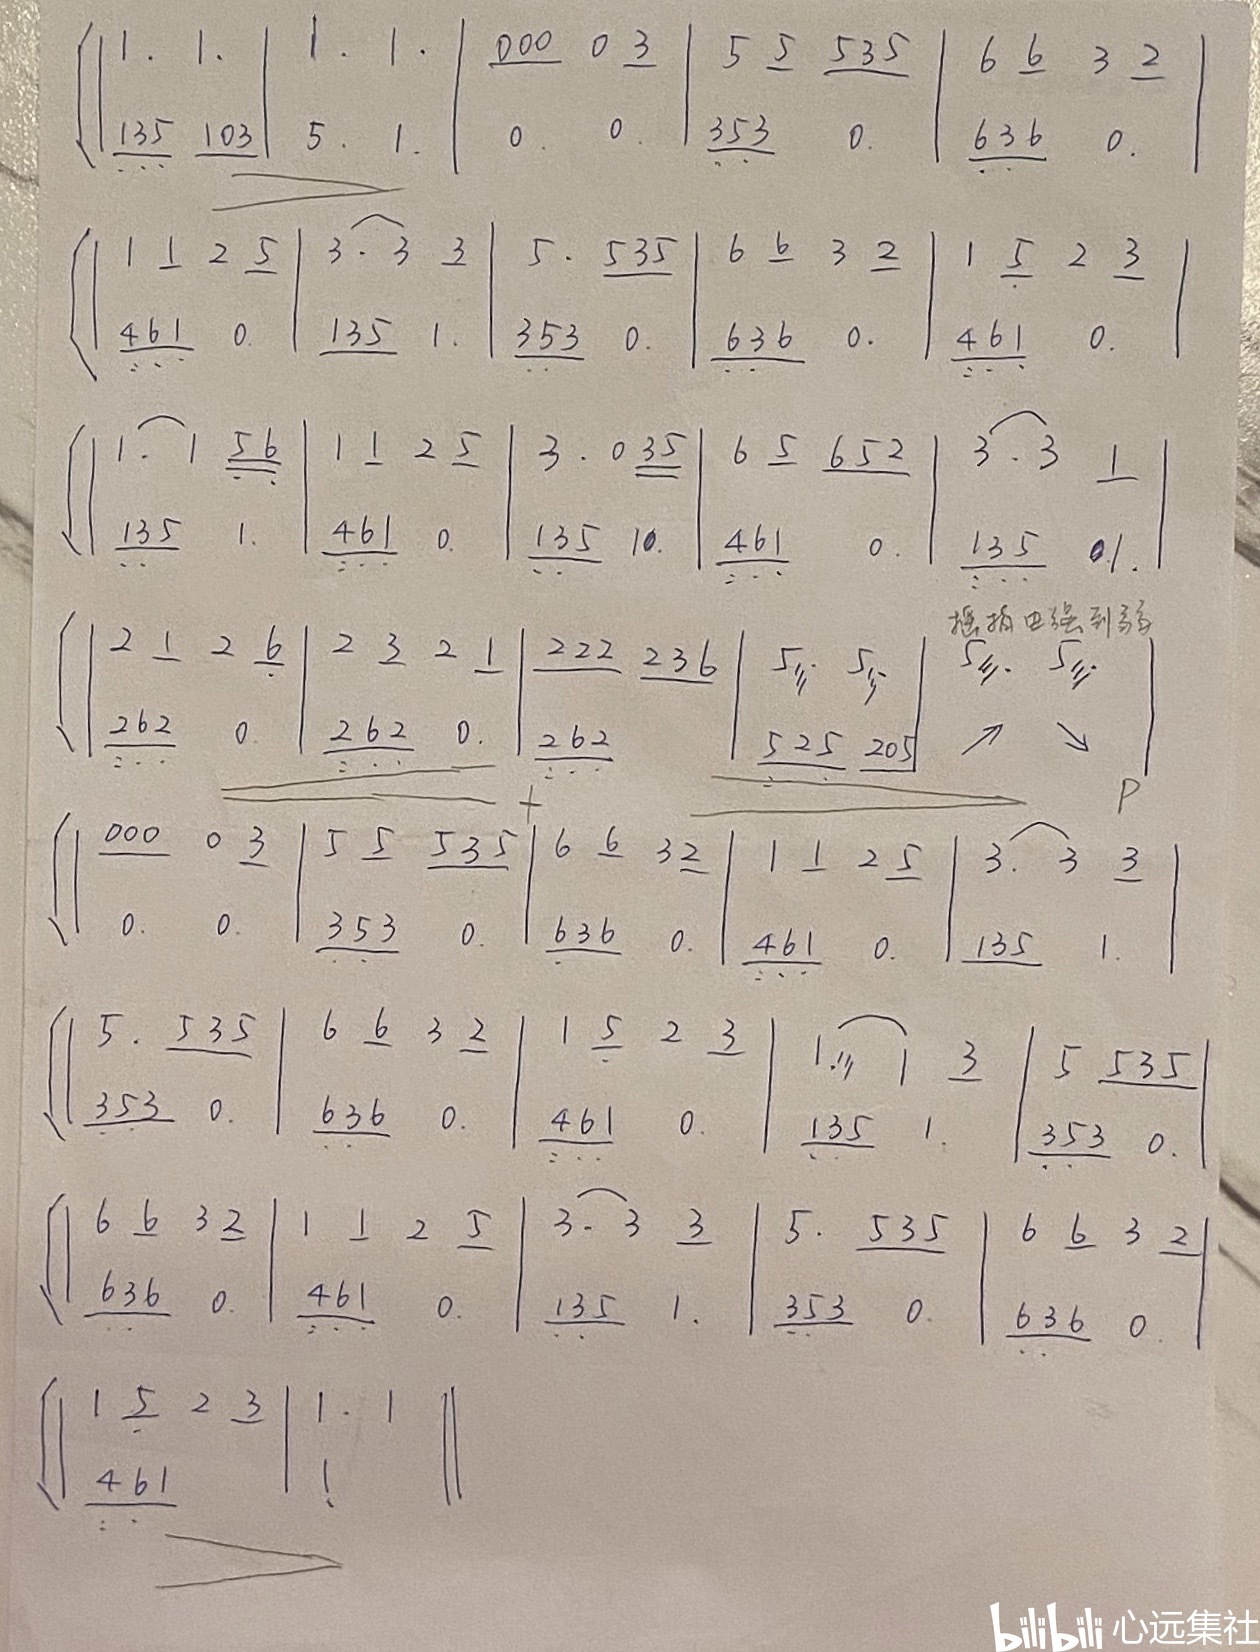 1. 1. | 1. 1. | 000 0 3 | 5 5 535 | 6 6 3 2 |
135 103 | 5. 1. | 0. 0. | 353 0. | 636 0. |
1 1 2 5 | 3. 3 3 | 5. 535 | 6 6 3 2 | 1 5 2 3 |
461 0. | 135 1. | 353 0. | 636 0. | 461 0. |
1. 1 56 | 1 1 2 5 | 3. 0 35 | 6 5 652 | 3. 3 1 |
135 1. | 461 0. | 135 10. | 461 0. | 135 1. |
摇指由强到弱
2 1 2 6 | 2 3 2 1 | 222 236 | 5. 5. | 5. 5. |
262 0. | 262 0. | 262 | 525 205 |
P
000 0 3 | 5 5 535 | 6 6 3 2 | 1 1 2 5 | 3. 3 3 |
0. 0. | 353 0. | 636 0. | 461 0. | 135 1. |
5. 535 | 6 6 3 2 | 1 5 2 3 | 1. 1 3 | 5 535 |
353 0. | 636 0. | 461 0. | 135 1. | 353 0. |
6 6 3 2 | 1 1 2 5 | 3. 3 3 | 5. 535 | 6 6 3 2 |
636 0. | 461 0. | 135 1. | 353 0. | 636 0. |
1 5 2 3 | 1. 1 ||
461 | 1
bilibili 心远集社